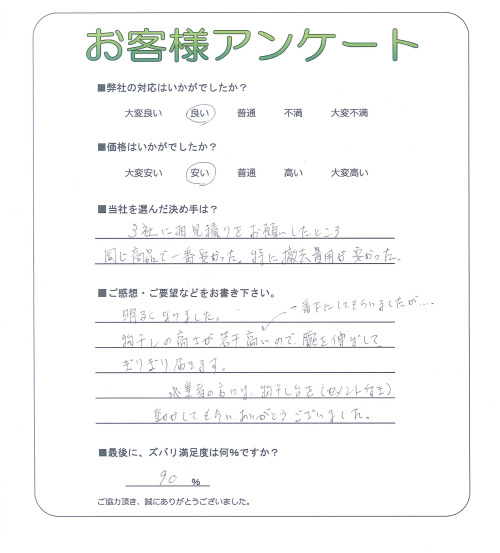 お客様アンケート
■弊社の対応はいかがでしたか？
大変良い 良い 普通 不満 大変不満
■価格はいかがでしたか？
大変安い 安い 普通 高い 大変高い
■当社を選んだ決め手は？
3社に相見積りをお願いしたところ
同じ商品で一番安かった。特に撤去費用が安かった。
■ご感想・ご要望などをお書き下さい。
一番下にしてもらいましたが....
明るくなりました。
物干しの高さが若干高いので、腕を伸ばして
ぎりぎり届きます。
作業者の方には、物干し台を(セメント付き)
動かしてもらい、ありがとうございました。
■最後に、ズバリ満足度は何％ですか？
90 ％
ご協力頂き、誠にありがとうございました。